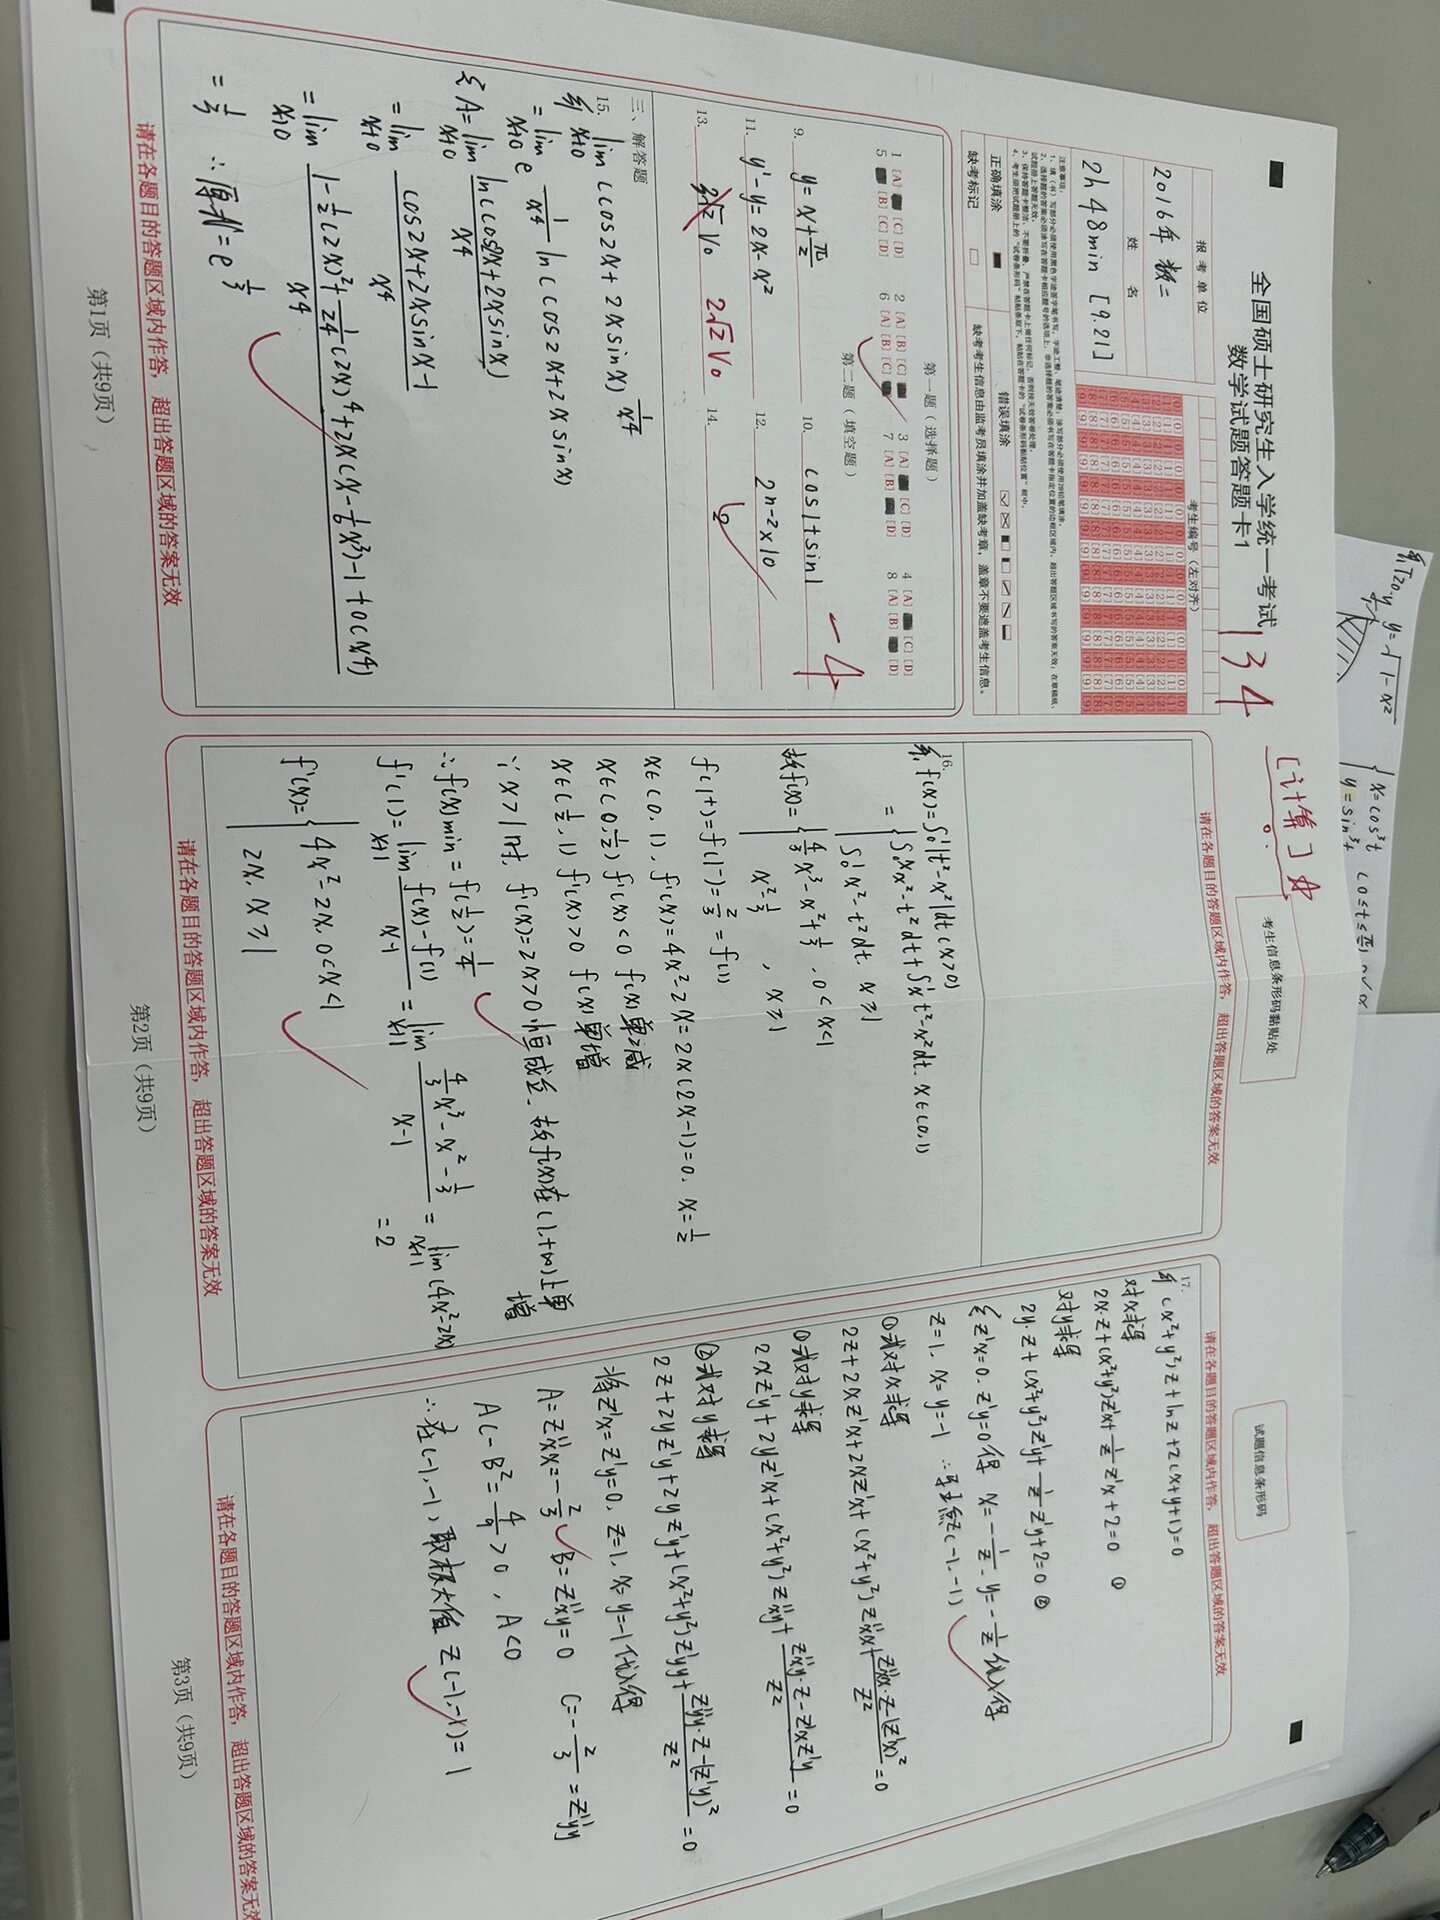 全国硕士研究生入学统一考试
数学试题答题卡1
134
[计算]☆
报考单位
2016年 数二
姓名
2h48min [9.21]
考生编号（左对齐）
考生信息条形码黏贴处
试题信息条形码
注意事项:
正确填涂
错误填涂
缺考标记
缺考考生信息由监考员填涂并加盖缺考章，盖章不要遮盖考生信息。
第一题（选择题）
1 [A] [C] [D]
2 [A] [B] [C]
3 [A] [C] [D]
4 [A] [C] [D]
5 [B] [C] [D]
6 [A] [B] [C]
7 [A] [B] [D]
8 [A] [B] [D]
第二题（填空题）
-4
9. y=x+π/2
10. cos1+sin1
11. y'-y=2x-x²
12. 2^(n-2)×10
13. 2√2 V₀
14. 2
三、解答题
15.
lim x→0 (cos2x+2xsinx)^(1/x⁴)
= lim x→0 e^(1/x⁴ ln(cos2x+2xsinx))
A= lim x→0 ln(cos2x+2xsinx)/x⁴
= lim x→0 (cos2x+2xsinx-1)/x⁴
= lim x→0 (1-½(2x)²+1/24(2x)⁴+2x(x-1/6x³)-1+o(x⁴))/x⁴
= 1/3 ∴原式=e^(1/3)
请在各题目的答题区域内作答，超出答题区域的答案无效
第1页（共9页）
请在各题目的答题区域内作答，超出答题区域的答案无效
16.
解, f(x)=∫₀¹|t²-x²|dt(x>0)
= { ∫₀ˣx²-t²dt+∫ₓ¹t²-x²dt. x∈(0,1)
∫₀¹x²-t²dt. x≥1
故f(x)= { 4/3x³-x²+1/3, 0<x<1
x²-1/3, x≥1
f(1+)=f(1-)=2/3=f(1)
x∈(0,1), f'(x)=4x²-2x=2x(2x-1)=0, x=1/2
x∈(0,1/2) f'(x)<0 f(x)单减
x∈(1/2,1) f'(x)>0 f(x)单增
∵x>1时 f'(x)=2x>0恒成立. 故f(x)在(1,+∞)上单增
∴f(x)min=f(1/2)=1/4
f'(1)= lim x→1 (f(x)-f(1))/(x-1) = lim x→1 (4/3x³-x²-1/3)/(x-1) = lim x→1 (4x²-2x)
=2
f'(x)= { 4x²-2x, 0<x<1
2x, x≥1
请在各题目的答题区域内作答，超出答题区域的答案无效
第2页（共9页）
请在各题目的答题区域内作答，超出答题区域的答案无效
17.
解 (x²+y²)z+lnz+2(x+y+1)=0
对x求导
2x·z+(x²+y²)z'x+1/z z'x+2=0 ①
对y求导
2y·z+(x²+y²)z'y+1/z z'y+2=0 ②
令z'x=0, z'y=0得 x=-1/z, y=-1/z代入得
z=1, x=y=-1 ∴驻点(-1,-1)
①式对x求导
2z+2xz'x+2xz'x+(x²+y²)z''xx+(z''xx·z-(z'x)²)/z²=0
①式对y求导
2xz'y+2yz'x+(x²+y²)z''xy+(z''xy·z-z'xz'y)/z²=0
②式对y求导
2z+2yz'y+2yz'y+(x²+y²)z''yy+(z''yy·z-(z'y)²)/z²=0
将z'x=z'y=0, z=1, x=y=-1代入得
A=z''xx=-2/3 B=z''xy=0 C=-2/3=z''yy
AC-B²=4/9>0, A<0
∴在(-1,-1)取极大值z(-1,-1)=1
请在各题目的答题区域内作答，超出答题区域的答案无效
第3页（共9页）
y=√(1-x²)
{ x=cos³t
y=sin³t (0≤t≤π/2)